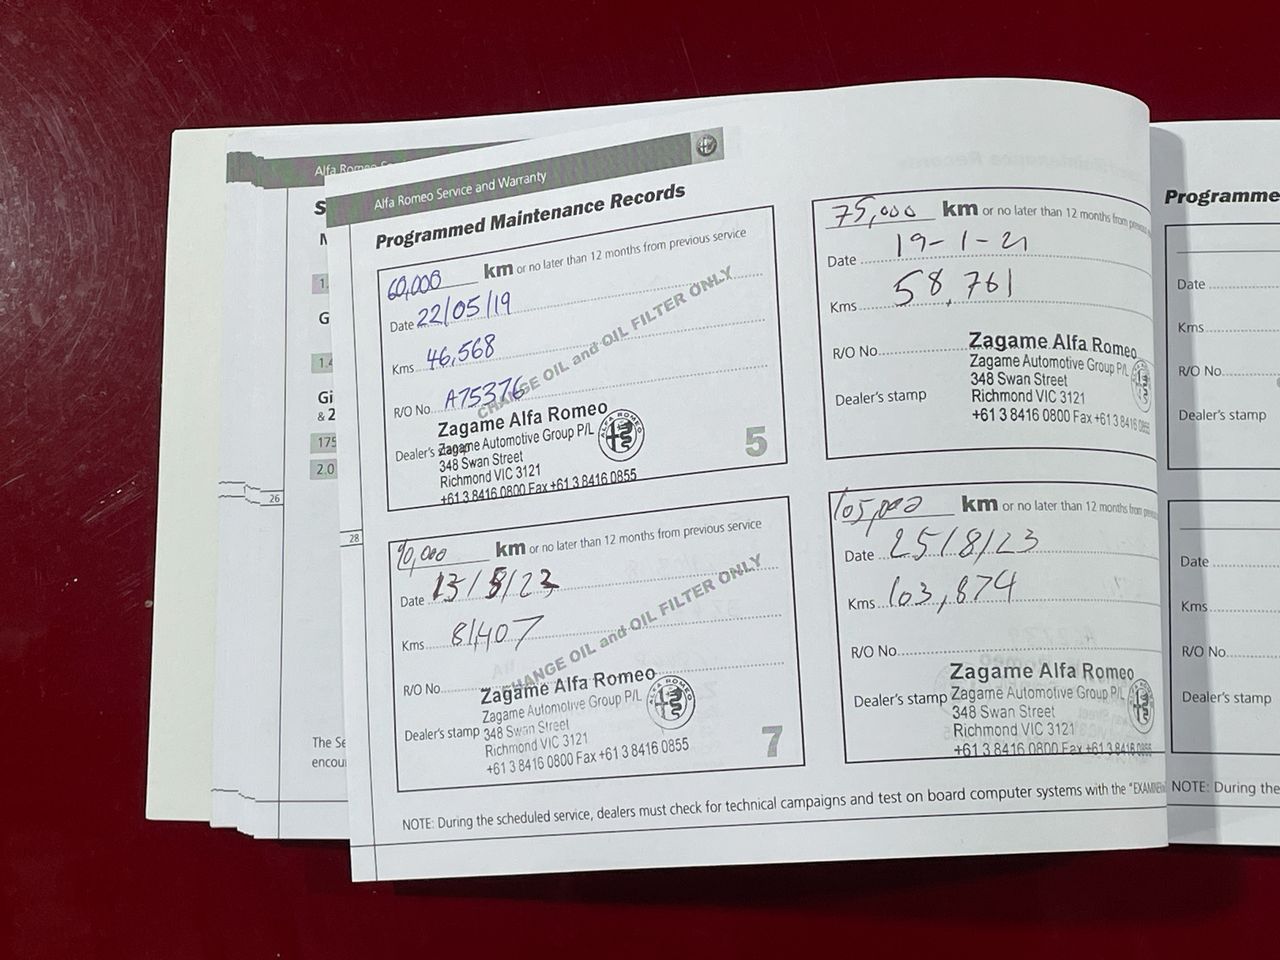 Alfa Romeo Service and Warranty
Programmed Maintenance Records
60,000 km or no later than 12 months from previous service
Date 22/05/19
Kms 46,568
R/O No. A75376
CHANGE OIL and OIL FILTER ONLY
Dealer's stamp
Zagame Alfa Romeo
Zagame Automotive Group P/L
348 Swan Street
Richmond VIC 3121
+61 3 8416 0800 Fax +61 3 8416 0855
5
75,000 km or no later than 12 months from previous
Date 19-1-21
Kms 58,761
R/O No.
Dealer's stamp
Zagame Alfa Romeo
Zagame Automotive Group P/L
348 Swan Street
Richmond VIC 3121
+61 3 8416 0800 Fax +61 3 8416 0855
90,000 km or no later than 12 months from previous service
Date 13/5/23
Kms 81407
R/O No.
CHANGE OIL and OIL FILTER ONLY
Dealer's stamp
Zagame Alfa Romeo
Zagame Automotive Group P/L
348 Swan Street
Richmond VIC 3121
+61 3 8416 0800 Fax +61 3 8416 0855
7
105,000 km or no later than 12 months from
Date 25/8/23
Kms 103,874
R/O No.
Dealer's stamp
Zagame Alfa Romeo
Zagame Automotive Group P/L
348 Swan Street
Richmond VIC 3121
+61 3 8416 0800 Fax +61 3 8416 0855
NOTE: During the scheduled service, dealers must check for technical campaigns and test on board computer systems with the
28
Alfa Romeo
S
G
Gi
& 2
175
2.0
26
The Se
encou
Programme
Date
Kms
R/O No.
Dealer's stamp
Date
Kms
R/O No.
Dealer's stamp
NOTE: During the